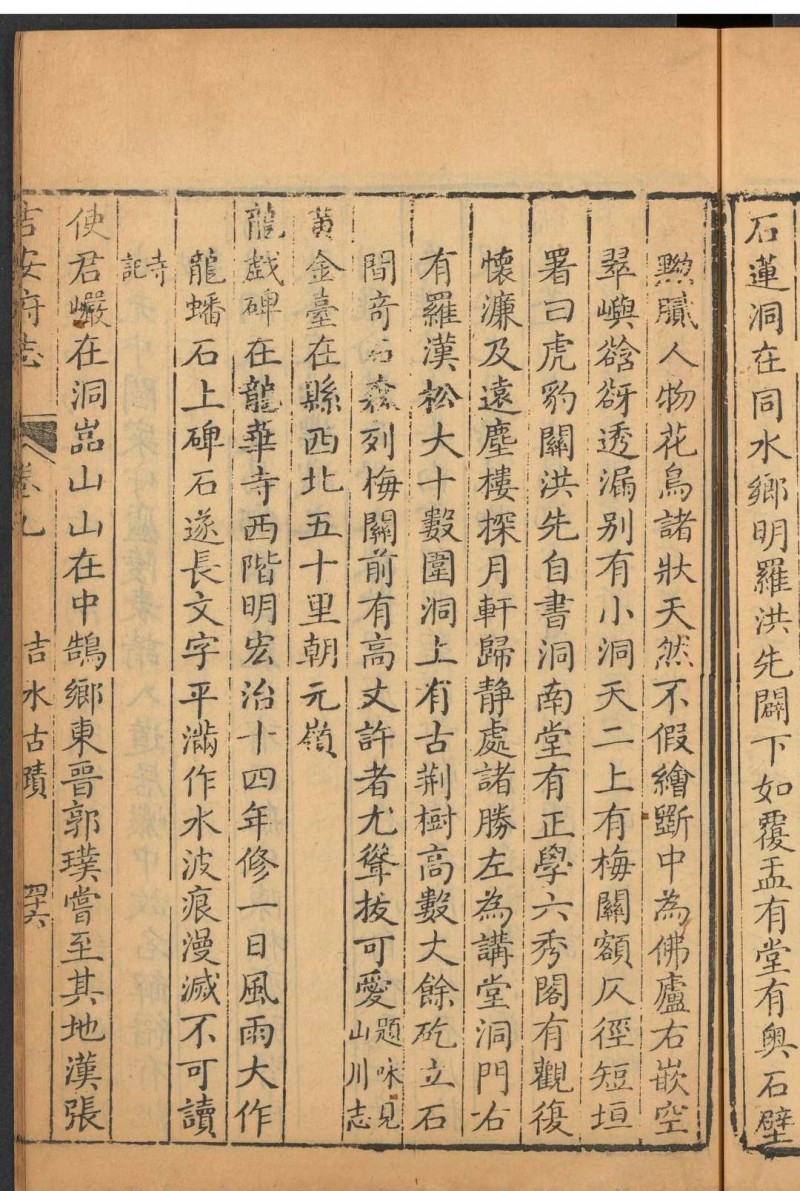 石蓮洞在同水鄉明羅洪先闢下如覆盂有堂有奥石壁
黝膩人物花鳥諸狀天然不假繪斵中為佛廬右嵌空
翠嶼谽谺透漏别有小洞天二上有梅關額仄徑短垣
署曰虎豹關洪先自書洞南堂有正學六秀閣有觀復
懷濂及遠塵樓探月軒歸静處諸勝左為講堂洞門右
有羅漢松大十數圍洞上有古荆樹高數大餘矻立石
間奇石森列梅關前有高丈許者尤聳拔可愛題咏見山川志
黄金臺在縣西北五十里朝元嶺
龍戲碑在龍華寺西階明宏治十四年修一日風雨大作
龍蟠石上碑石遂長文字平漰作水波痕漫滅不可讀
寺記
使君巖在洞嵓山山在中鵠鄉東晋郭璞嘗至其地漢張
吉安府志 卷九 吉水古蹟 四十六